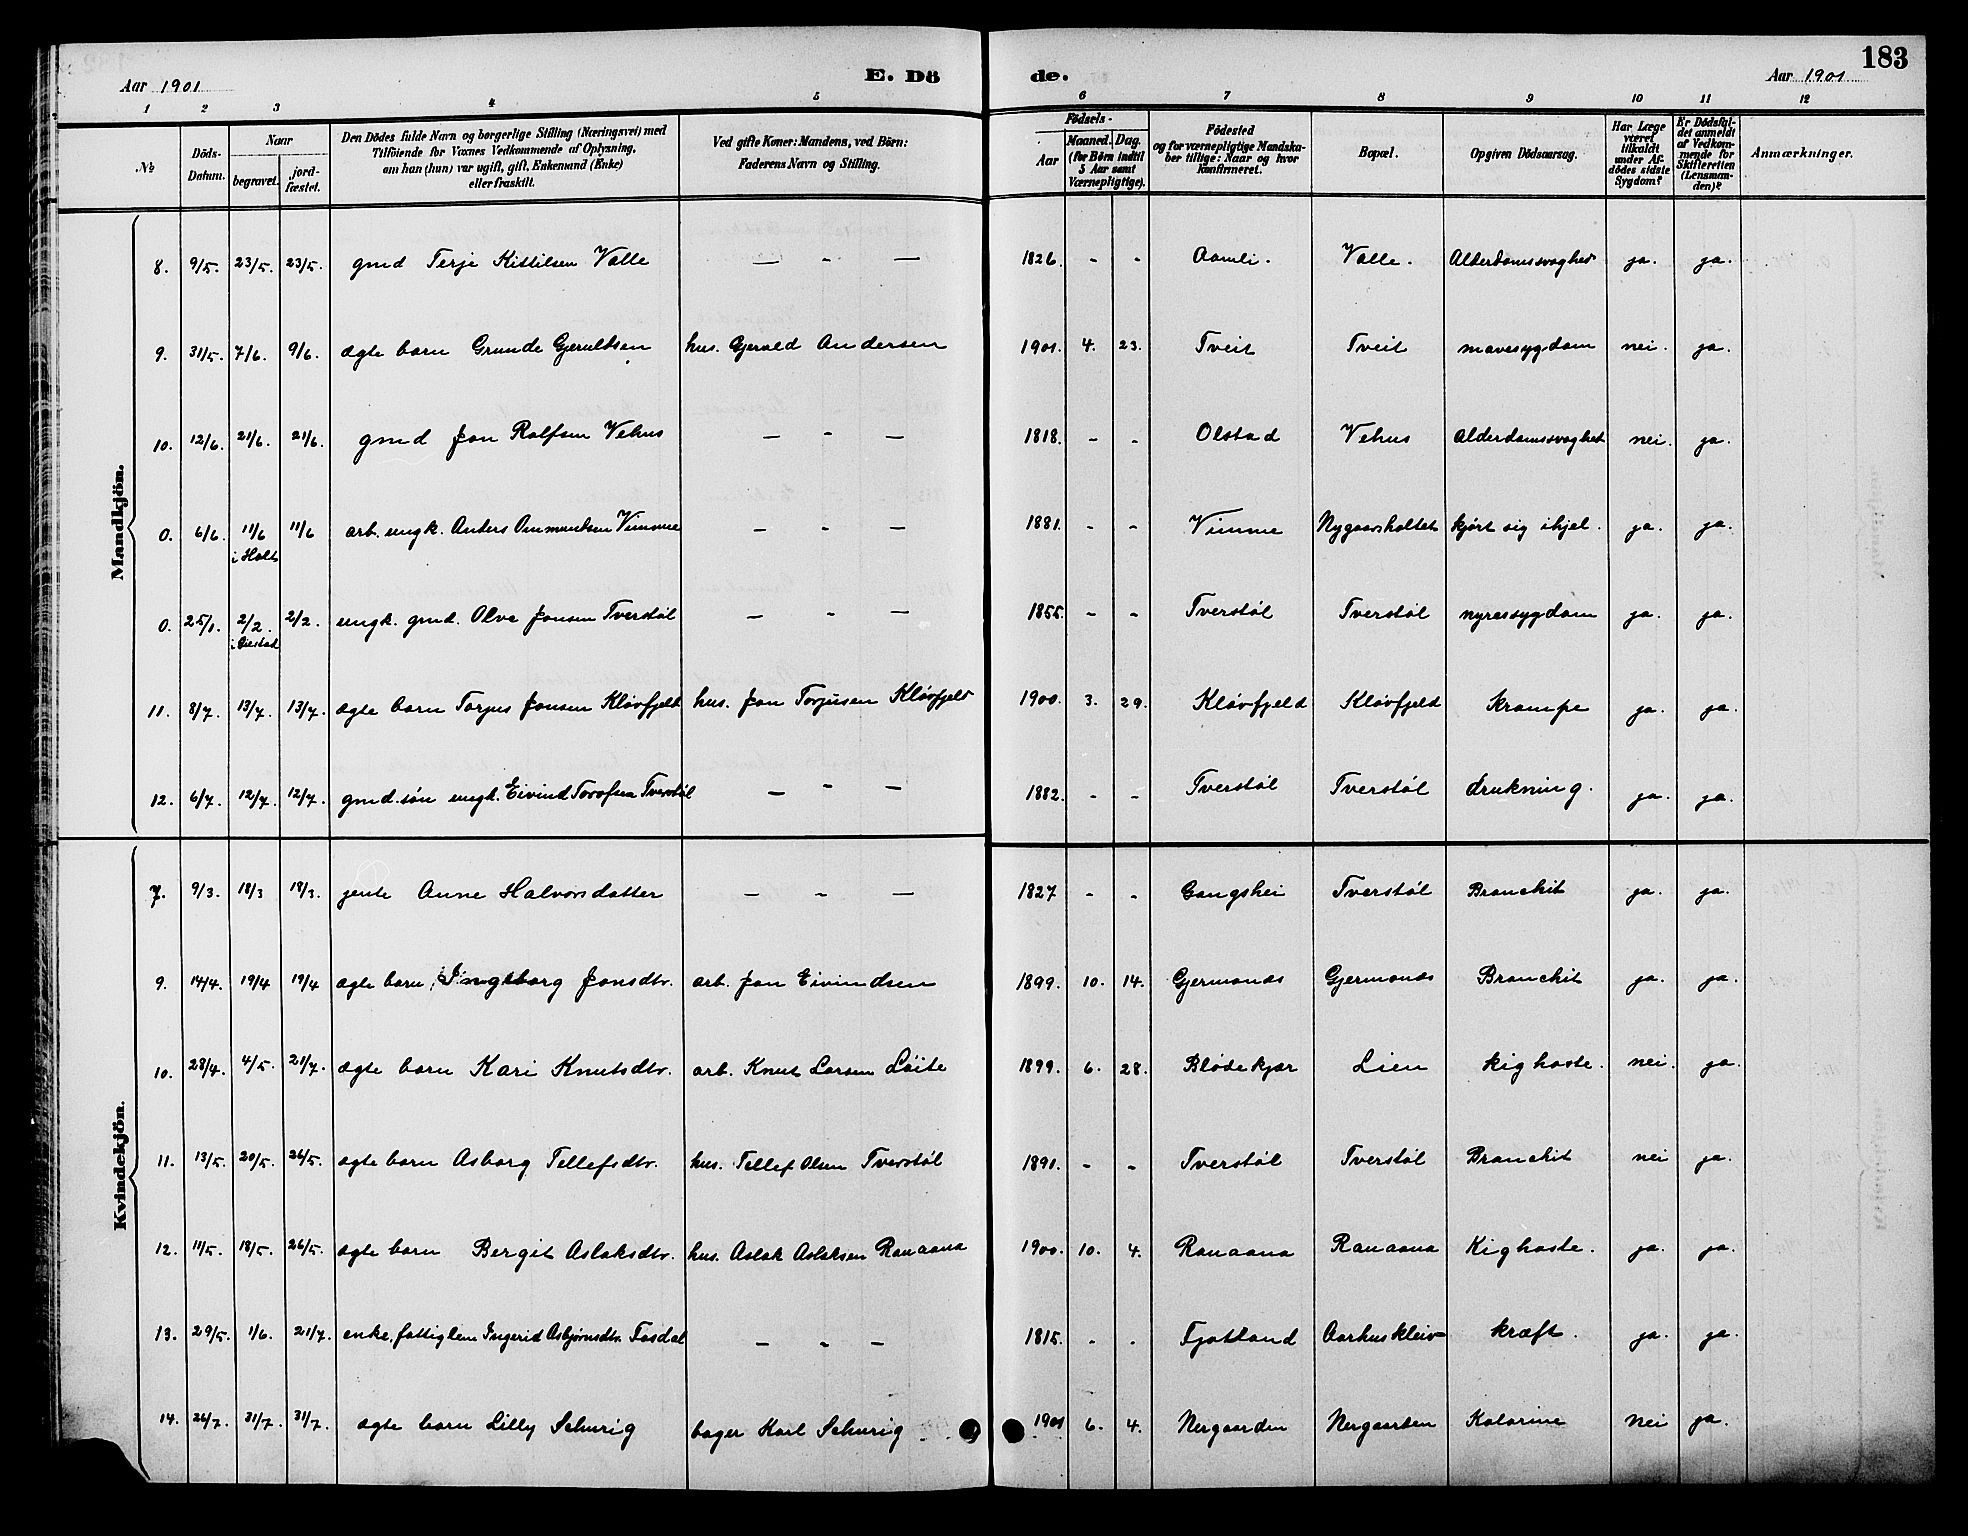 183
Aar 1901 E. Dö de. Aar 1901
1 2 3 4 5 6 7 8 9 10 11 12
№ Döds-Datum. Naar begravet. jordfæstet. Den Dödes fulde Navn og borgerlige Stilling (Næringsvei) med Tilföiende for Voxnes Vedkommende af Oplysning, om han (hun) var ugift, gift, Enkemand (Enke) eller fraskilt. Ved gifte Koner: Mandens, ved Börn: Faderens Navn og Stilling. Födsels- Aar Maaned. Dag. (for Börn indtil 5 Aar samt Værnepligtige). Födested og for værnepligtige Mandskaber tillige: Naar og hvor konfirmeret. Bopæl. Opgiven Dödsaarsag. Har Læge været tilkaldt under Afdödes sidste Sygdom? Er Dödsfaldet anmeldt af Vedkommende for Skifteretten (Lensmanden)? Anmærkninger.
Mandkjön.
8. 9/5. 23/5. 23/5. gmd Terje Kittilsen Valle — - — 1826. - - Aamli. Valle. Alderdomssvaghed ja. ja.
9. 31/5. 7/6. 9/6. ægte barn Grunde Gjeruldsen hus. Gjerold Andersen 1901. 4. 23. Tveit Tveit mavesygdom nei. ja.
10. 12/6. 21/6. 21/6. gmd Jon Rolfsen Vehus — - — 1818. - - Olstad Vehus Alderdomssvaghet nei. ja.
0. 6/6. 11/6 i Holt 11/6 arb. ungk. Anders Ommundsen Vimme — - — 1881. - - Vimme Nygaardsholtet kjørt sig ihjel. ja. ja.
0. 25/1. 2/2. i Gjestad 2/2. ungk. gmd. Olve Jonsen Tverstøl — - — 1855. - - Tverstøl Tverstøl nyresygdom ja. ja.
11. 8/7. 13/7. 13/7. ægte barn Torjus Jonsen Kløvfjeld hus. Jon Torjusen Kløvfjeld 1900. 3. 29. Kløvfjeld Kløvfjeld Krampe ja. ja.
12. 6/7. 12/7. 12/7. gmd.søn ungk. Eivind Torofsen Tverstøl — - — 1882. - - Tverstøl Tverstøl drukning. ja. ja.
Kvindekjön.
7. 9/3. 18/3 18/3. jente Anne Halvorsdatter — - — 1827 - - Gangshei Tverstøl Bronchit ja. ja.
9. 14/4. 19/4 19/4 ægte barn, Ingeborg Jonsdtr. arb. Jon Eivindsen 1899. 10. 14. Gjermonds Gjermonds Bronchit ja. ja.
10. 28/4. 4/5. 21/7. ægte barn Kari Knutsdtr. arb. Knut Larsen Løite 1899. 6. 28. Blødekjær Lien Kighoste. nei. ja.
11. 13/5. 20/5. 26/5. ægte barn Asborg Tellefsdtr. hus. Tellef Olsen Tverstøl 1891. - - Tverstøl Tverstøl Bronchit nei ja.
12. 11/5. 18/5. 26/5. ægte barn Bergit Aslaksdtr. hus. Aslak Aslaksen Ranaana 1900. 10. 4. Ranaana Ranaana Kighoste. ja. ja.
13. 29/5. 1/6. 21/7. enke, fattiglem Ingerid Asbjørnsdtr. Fosdal — - — 1815. - - Fjotland Aarhuskleiv kræft. ja. ja.
14. 26/7. 31/7. 31/7. ægte barn Lilly Schurig bager Karl Schurig 1901 6. 4. Nergaarden Nergaarden Kolorine nei ja.